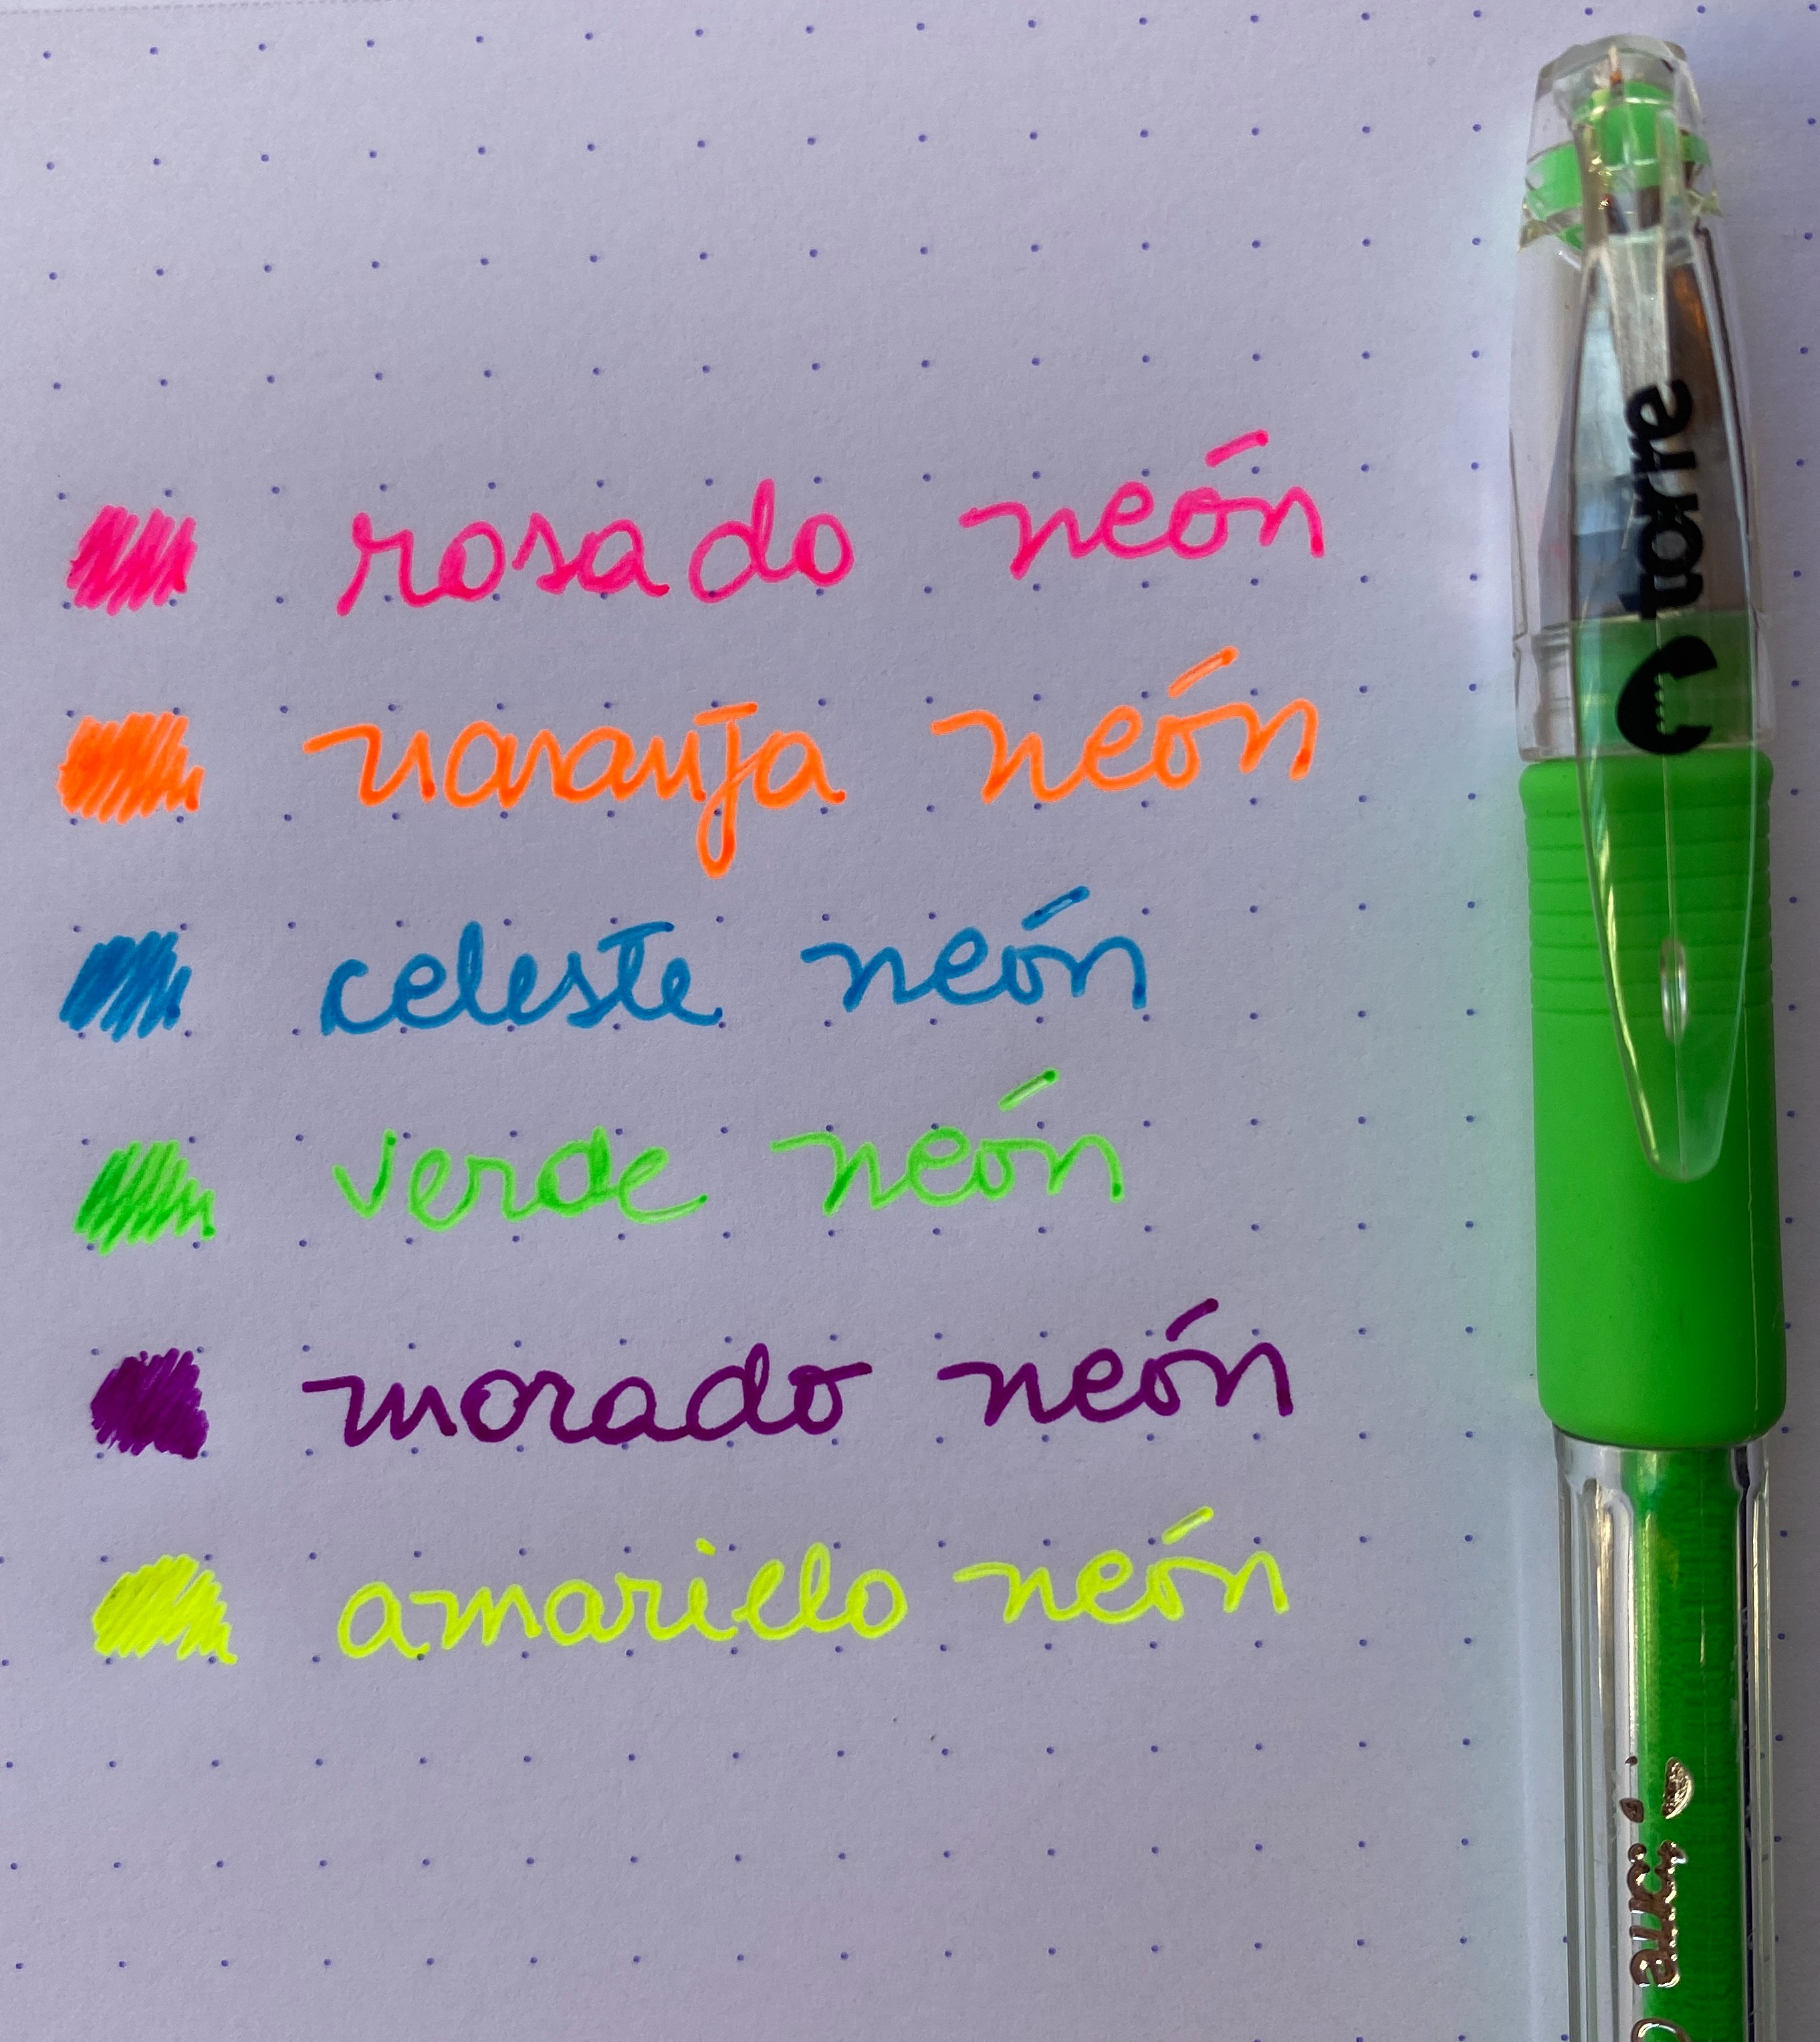 rosado neón
naranja neón
celeste neón
verde neón
morado neón
amarillo neón
torre